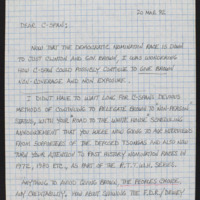 20 MAR 92
DEAR C-SPAN:
NOW THAT THE DEMOCRATIC NOMINATION RACE IS DOWN
TO JUST CLINTON AND GOV. BROWN, I WAS WONDERING
HOW C-SPAN COULD POSSIBLY CONTINUE TO GIVE BROWN
NON-COVERAGE AND NON EXPOSURE.
I DIDN'T HAVE TO WAIT LONG FOR C-SPAN'S DEVIOUS
METHODS OF CONTINUING TO RELEGATE BROWN TO "NON-PERSON"
STATUS, WITH YOUR "ROAD TO THE WHITE HOUSE" SCHEDULING
ANNOUNCEMENT THAT YOU WERE NOW GOING TO AIR INTERVIEWS
FROM SUPPORTERS OF THE DEFEATED TSONGAS AND ALSO NOW
TURN YOUR ATTENTION TO PAST HISTORY NOMINATION RACES IN
1972, 1980 ETC., AS PART OF THE R.T.T.W.H. SERIES.
ANYTHING TO AVOID GIVING BROWN, THE PEOPLE'S CHOICE,
ANY
HOW ABOUT RUNNING THE F.D.R./DEWEY